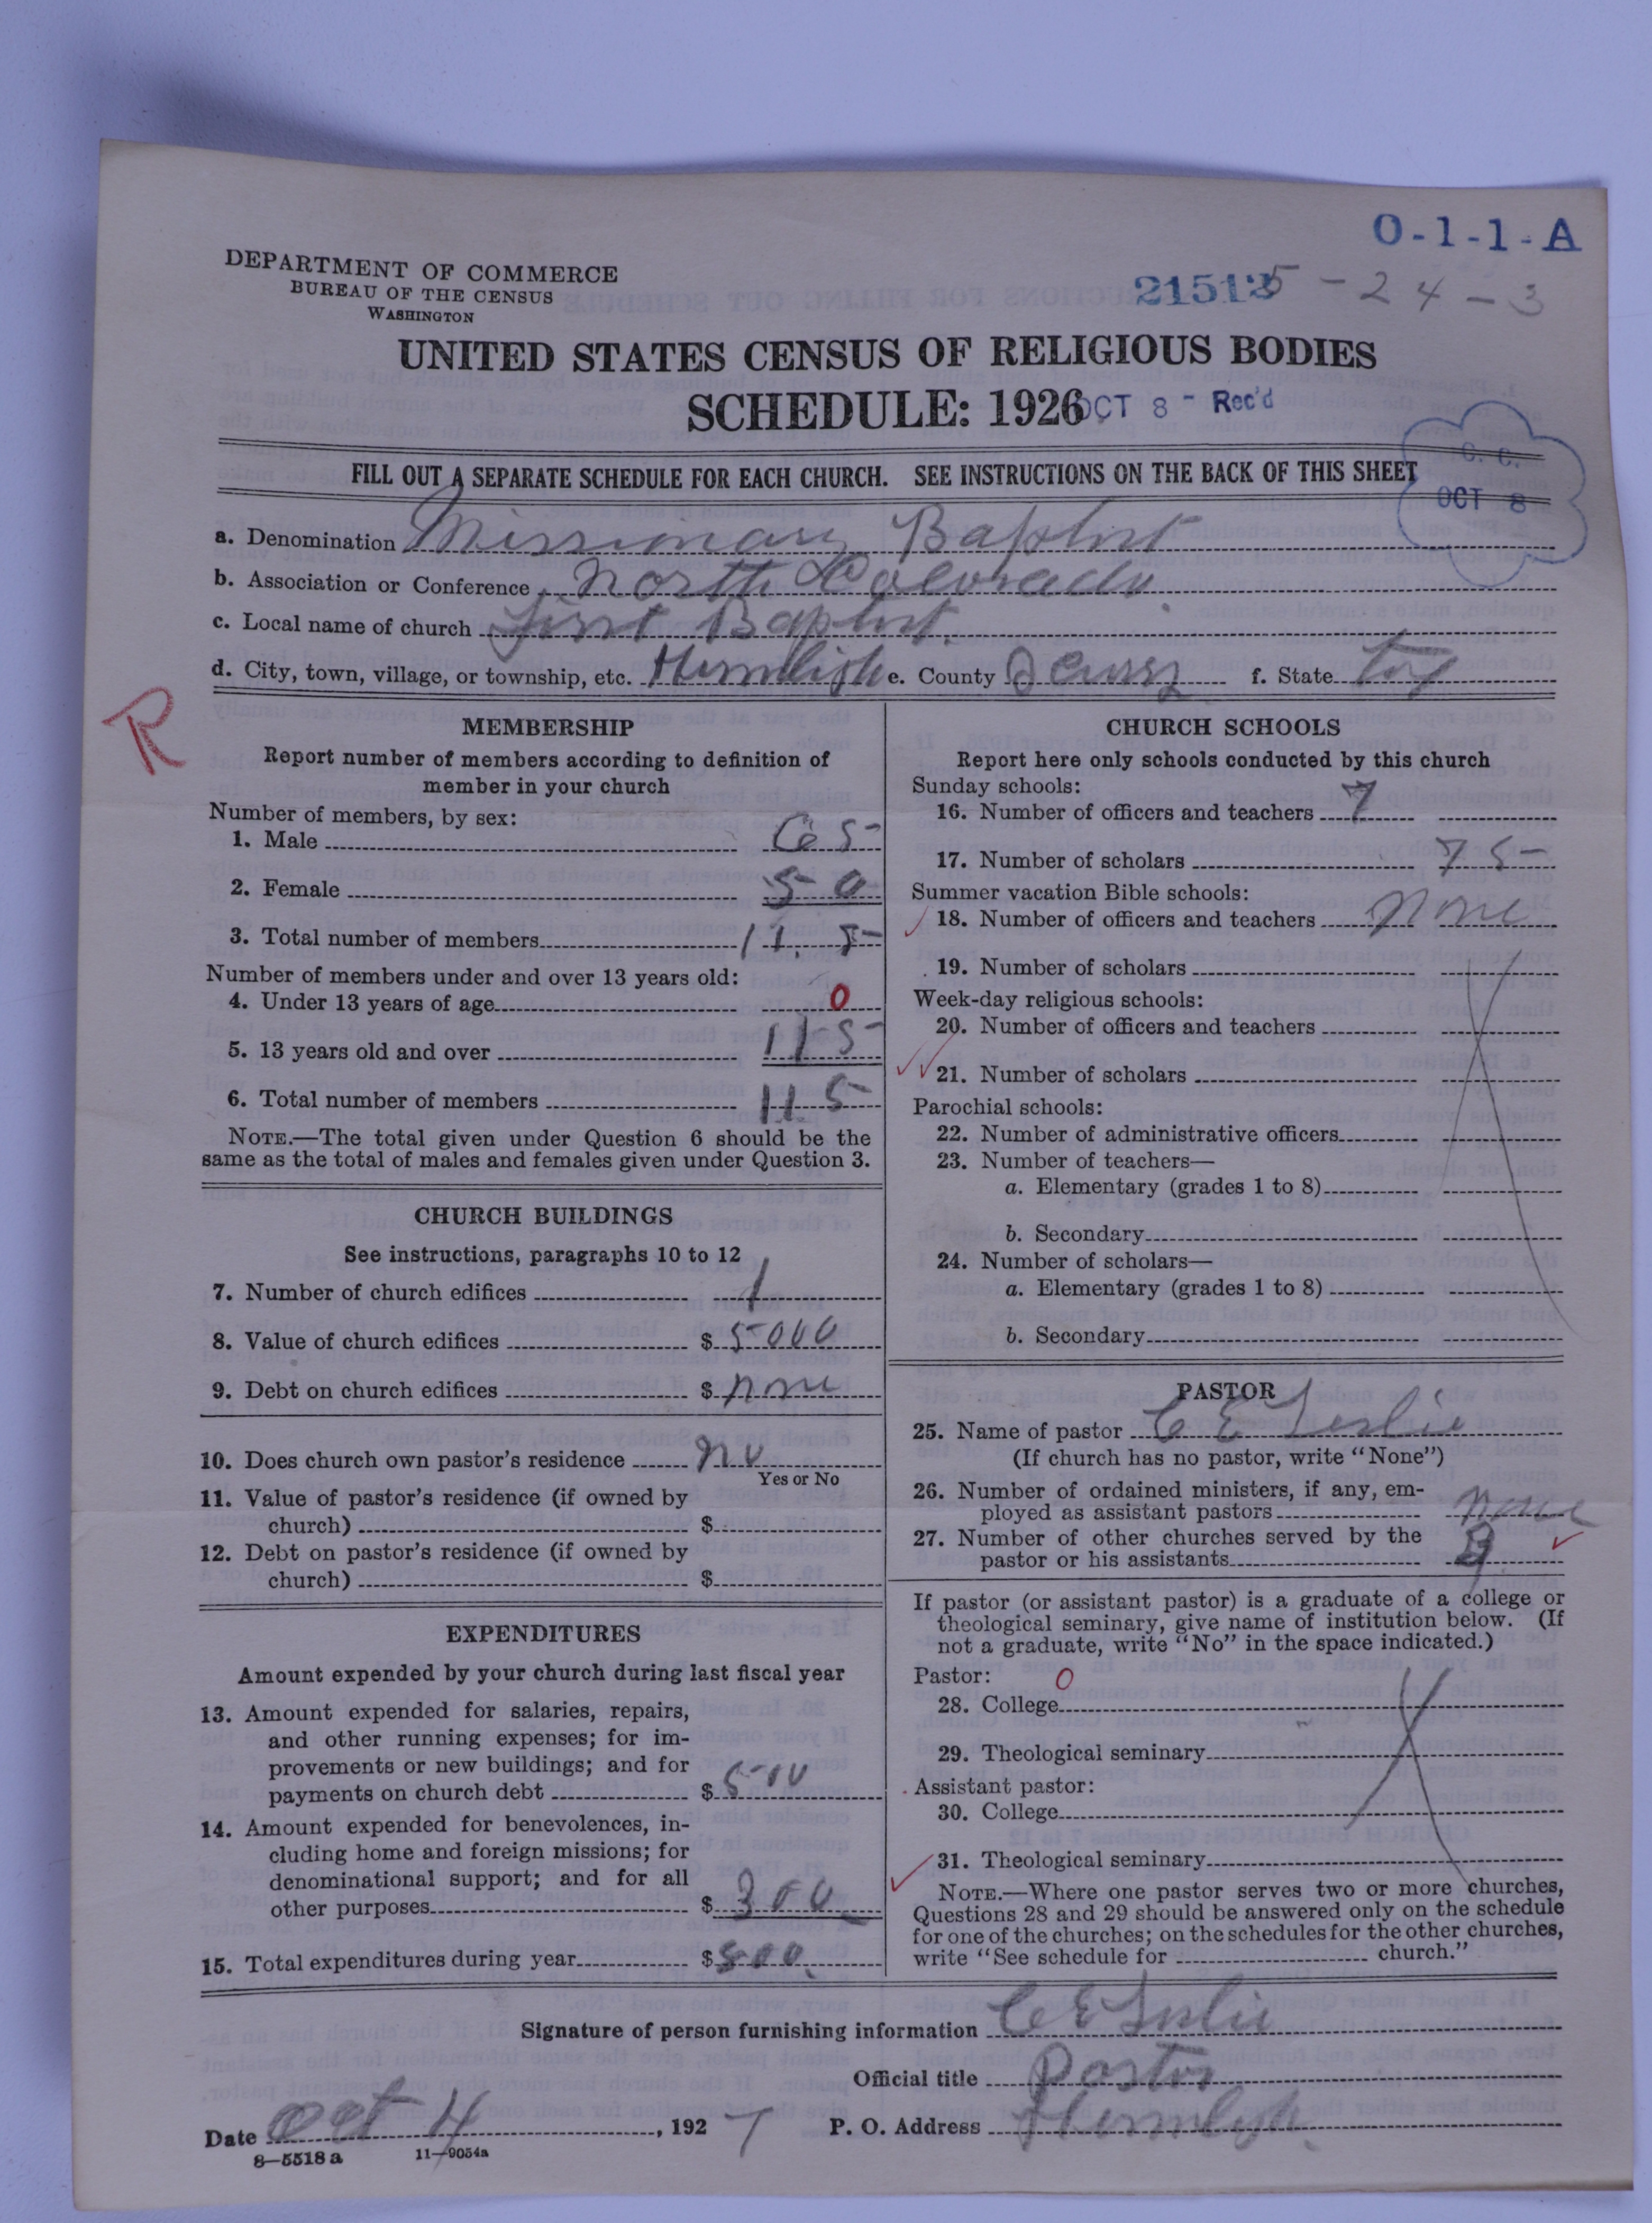 O-1-1-A
DEPARTMENT OF COMMERCE
BUREAU OF THE CENSUS
WASHINGTON
21512 5-24-3
UNITED STATES CENSUS OF RELIGIOUS BODIES
SCHEDULE: 1926
OCT 8 - Rec'd
FILL OUT A SEPARATE SCHEDULE FOR EACH CHURCH. SEE INSTRUCTIONS ON THE BACK OF THIS SHEET
C. C.
OCT 8
a. Denomination Missionary Baptist
b. Association or Conference North Colorado.
c. Local name of church First Baptist.
d. City, town, village, or township, etc. Hermligh e. County Scurry f. State Tex
R
MEMBERSHIP
Report number of members according to definition of
member in your church
Number of members, by sex:
1. Male 65
2. Female 50
3. Total number of members 115
Number of members under and over 13 years old:
4. Under 13 years of age 0
5. 13 years old and over 115
6. Total number of members 115
NOTE.—The total given under Question 6 should be the
same as the total of males and females given under Question 3.
CHURCH BUILDINGS
See instructions, paragraphs 10 to 12
7. Number of church edifices 1
8. Value of church edifices $ 5000
9. Debt on church edifices $ none
10. Does church own pastor's residence no
Yes or No
11. Value of pastor's residence (if owned by
church) $
12. Debt on pastor's residence (if owned by
church) $
EXPENDITURES
Amount expended by your church during last fiscal year
13. Amount expended for salaries, repairs,
and other running expenses; for im-
provements or new buildings; and for
payments on church debt $ 500
14. Amount expended for benevolences, in-
cluding home and foreign missions; for
denominational support; and for all
other purposes $ 300
15. Total expenditures during year $ 800.
CHURCH SCHOOLS
Report here only schools conducted by this church
Sunday schools:
16. Number of officers and teachers 7
17. Number of scholars 75
Summer vacation Bible schools:
18. Number of officers and teachers none
19. Number of scholars
Week-day religious schools:
20. Number of officers and teachers
21. Number of scholars
Parochial schools:
22. Number of administrative officers
23. Number of teachers—
a. Elementary (grades 1 to 8)
b. Secondary
24. Number of scholars—
a. Elementary (grades 1 to 8)
b. Secondary
PASTOR
25. Name of pastor C E Leslie
(If church has no pastor, write "None")
26. Number of ordained ministers, if any, em-
ployed as assistant pastors none
27. Number of other churches served by the
pastor or his assistants
If pastor (or assistant pastor) is a graduate of a college or
theological seminary, give name of institution below. (If
not a graduate, write "No" in the space indicated.)
Pastor: 0
28. College
29. Theological seminary
Assistant pastor:
30. College
31. Theological seminary
NOTE.—Where one pastor serves two or more churches,
Questions 28 and 29 should be answered only on the schedule
for one of the churches; on the schedules for the other churches,
write "See schedule for church."
Signature of person furnishing information C E Leslie
Official title Pastor
Date Oct 4, 1927 P. O. Address Hermligh.
8—5518 a 11—9054a